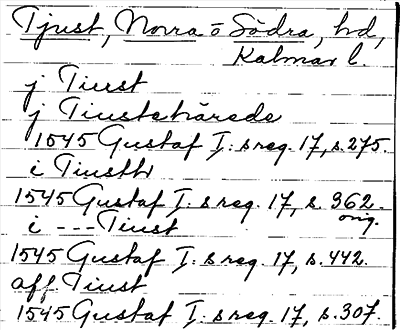 Tjust, Norra o Södra, hd,
Kalmar l.
j Tiust
j Tiustehärede
1545 Gustaf I:s reg. 17, s. 275.
i Tiusttr
1545 Gustaf I:s reg. 17, s. 362.
orig.
i --- Tiust
1545 Gustaf I:s reg. 17, s. 442.
aff Tiust
1545 Gustaf I:s reg. 17, s. 307.